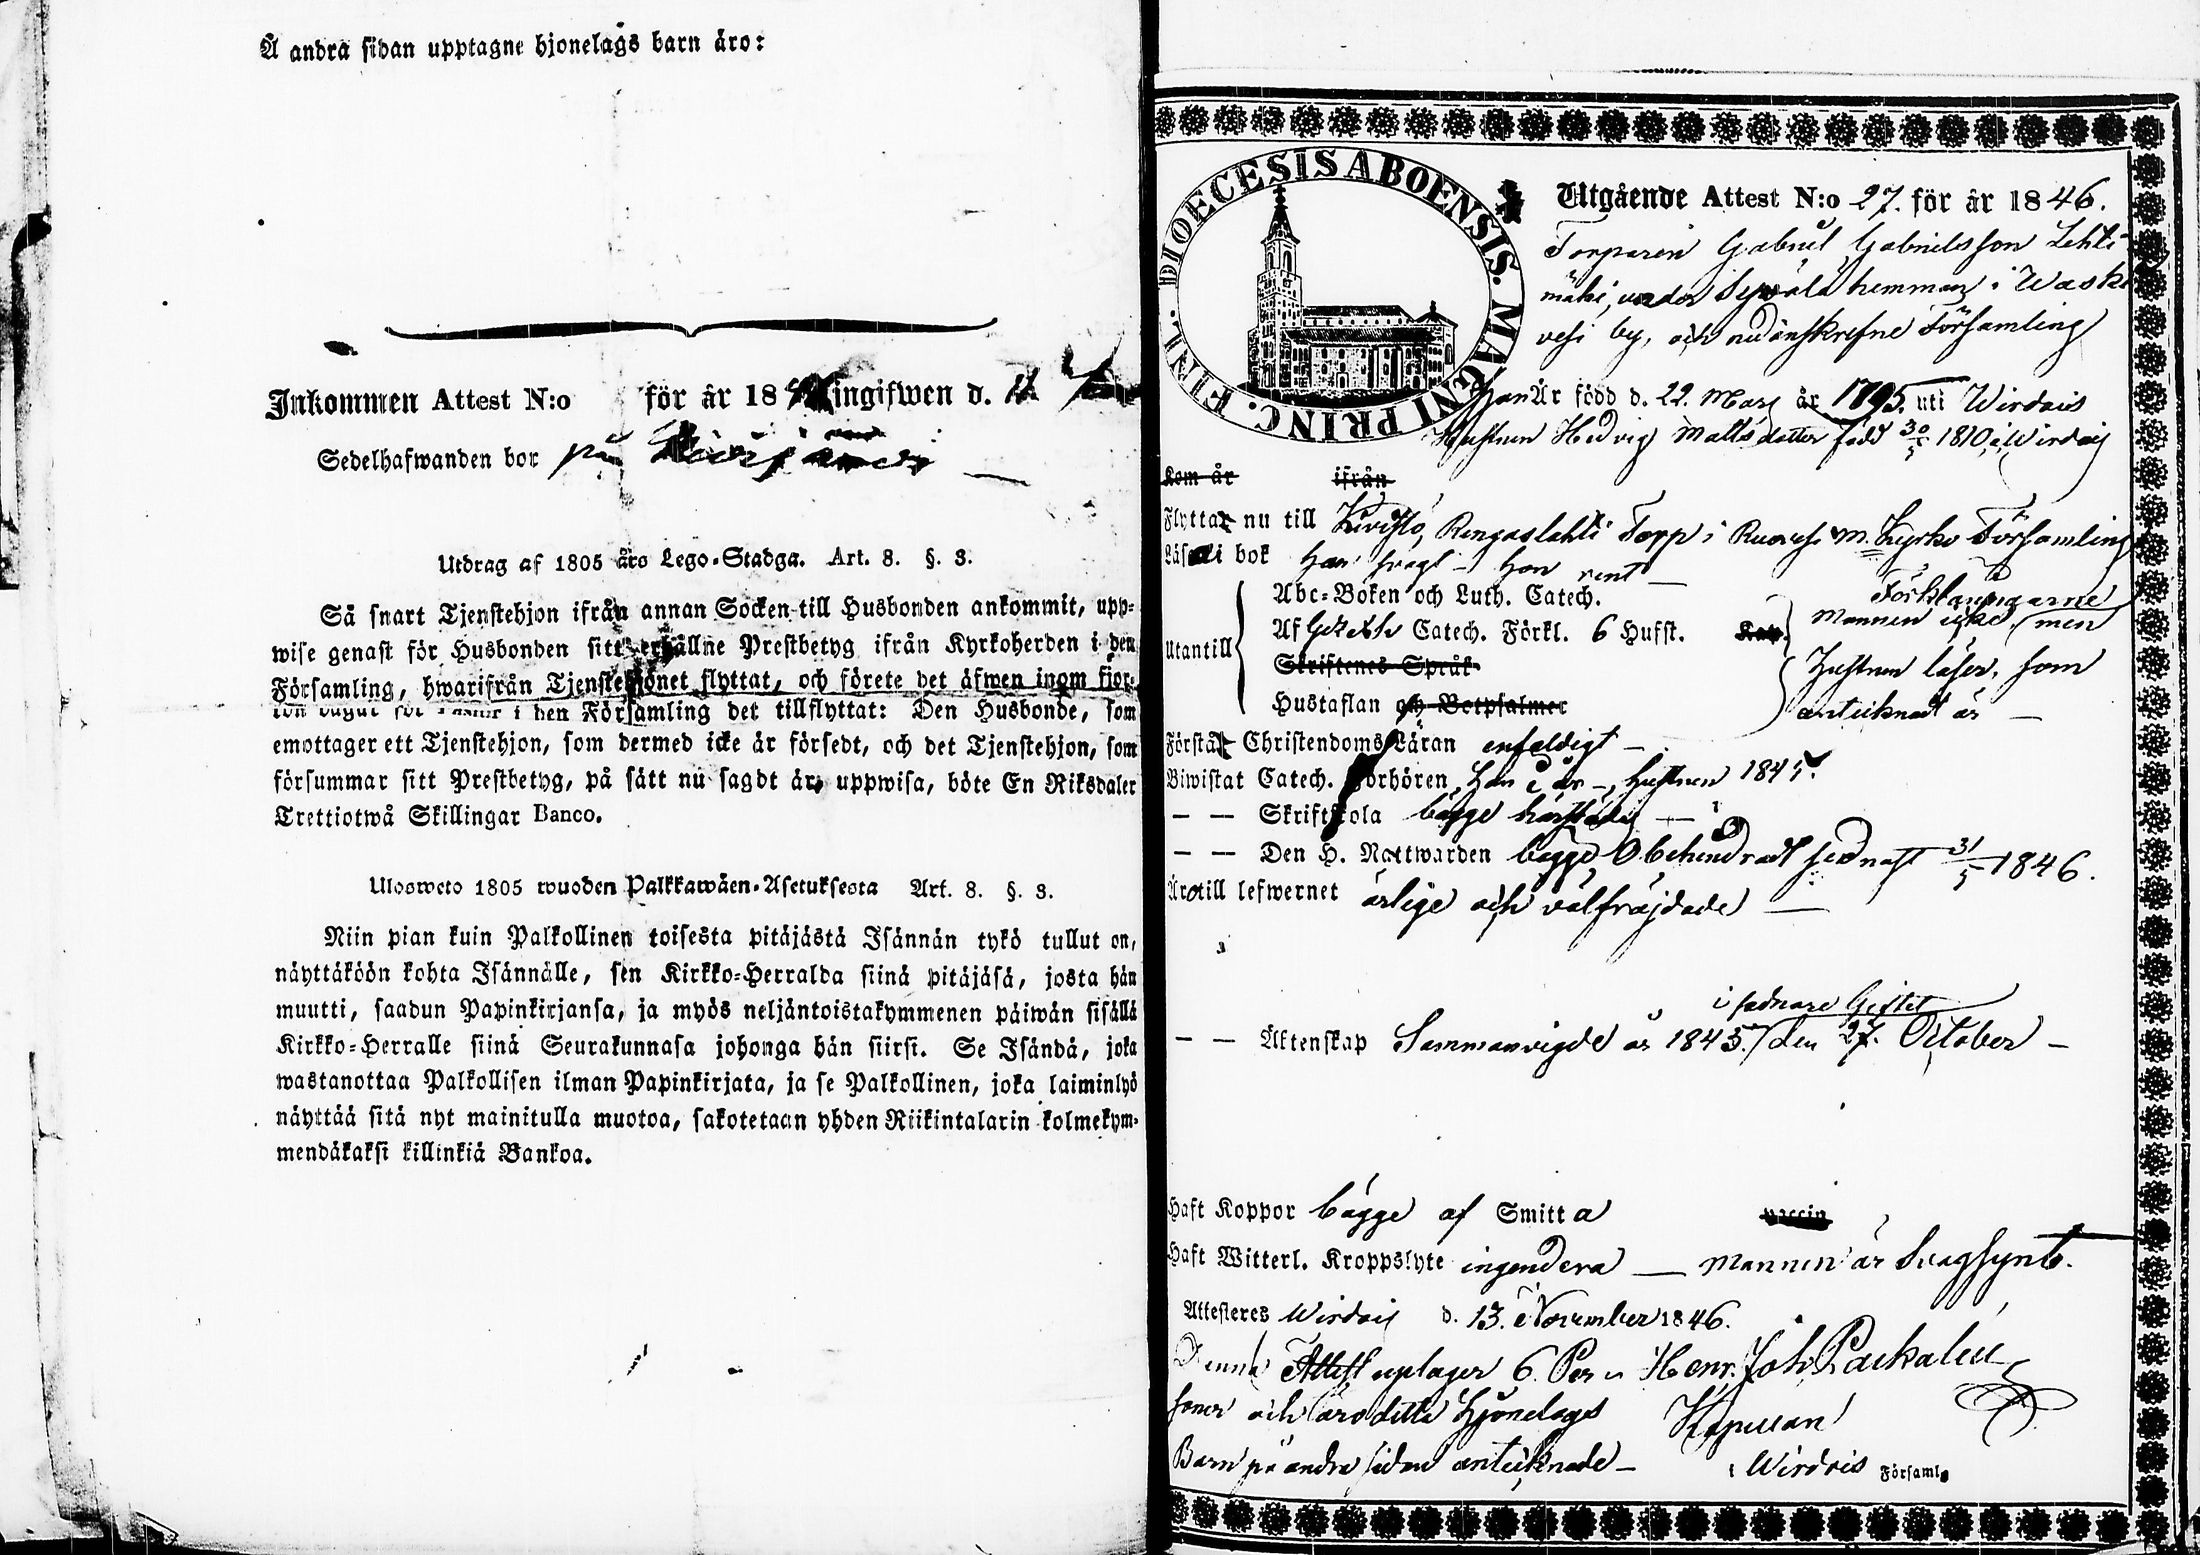 Å andra sidan upptagne hjonelags barn äro:
Inkommen Attest N:o för år 18 ingifwen d.
Sedelhafwanden bor på
Utdrag af 1805 års Lego-Stadga. Art. 8. §. 3.
Så snart Tjenstehjon ifrån annan Socken till Husbonden ankommit, upp-
wise genast för Husbonden sitt erhållne Prestbetyg ifrån Kyrkoherden i den
Församling, hwarifrån Tjenstehjonet flyttat, och förete det äfwen inom fjor-
ton dagar för Pastor i den Församling det tillflyttat: Den Husbonde, som
emottager ett Tjenstehjon, som dermed icke är försedt, och det Tjenstehjon, som
försummar sitt Prestbetyg, på sätt nu sagdt är, uppwisa, böte En Riksdaler
Trettiotwå Skillingar Banco.
Ulosweto 1805 wuoden Palkkawäen-Asetuksesta Art. 8. §. 3.
Niin pian kuin Palkollinen toisesta pitäjästä Isännän tykö tullut on,
näyttäköön kohta Isännälle, sen Kirkko-Herralda siinä pitäjäsä, josta hän
muutti, saadun Papinkirjansa, ja myös neljäntoistakymmenen päiwän sisällä
Kirkko-Herralle siinä Seurakunnasa johonga hän siirsi. Se Isändä, joka
wastanottaa Palkollisen ilman Papinkirjata, ja se Palkollinen, joka laiminlyö
näyttää sitä nyt mainitulla muotoa, sakotetaan yhden Riikintalarin kolmekym-
mendäkaksi killinkiä Bankoa.
DIOECESIS ABOENSIS. MAGNI PRINC. FINL.
Utgående Attest N:o 27. för år 1846.
Torparen Gabriel Gabrielsson Lehti
mäki, under Sipilä hemman i Waski
vesi by, och nedanskrefne Församling
Han Är född d. 22. Mars år 1795. uti Wirdois
Hustrun Hedvig Mattsdotter född 30/5 1810 i Wirdois
Kom år ifrån
Flyttar nu till Kivistö, Rengaslahti Torp i Ruovesi M. Kyrko Församling
Läsa i bok Han svagt - hon rent -
Abc-Boken och Luth. Catech. Förklaringarne
Utantill Af Gezelii Catech. Förkl. 6 Hufst. Kap. Mannen icke, men
Skriftenes Språk Hustrun läser, som
Hustaflan och Botpsalmer anteiknadt är -
Förstår Christendoms Läran enfaldigt -
Biwistat Catech. Förhören, Han i år -, Hustrun 1845.
— — Skriftskola bägge härstädes -
— — Den H. Nattwarden bägge Obehindradt sednast 31/5 1846.
Äro till lefwernet ärlige och välfräjdade -
i sednare Giftet
— — Äktenskap Sammanvigde år 1845. den 27. October -
Haft Koppor bägge af Smitta vaccin
Haft Witterl. Kroppslyte ingendera - Mannen är svagsynt.
Attesteres Wirdois d. 13. November 1846.
Denna Attest uptager 6. Per- Henr. Joh.
soner och äro detta Hjonelags Kapellan
Barn på andra sidan anteiknade - i Wirdois Församl.